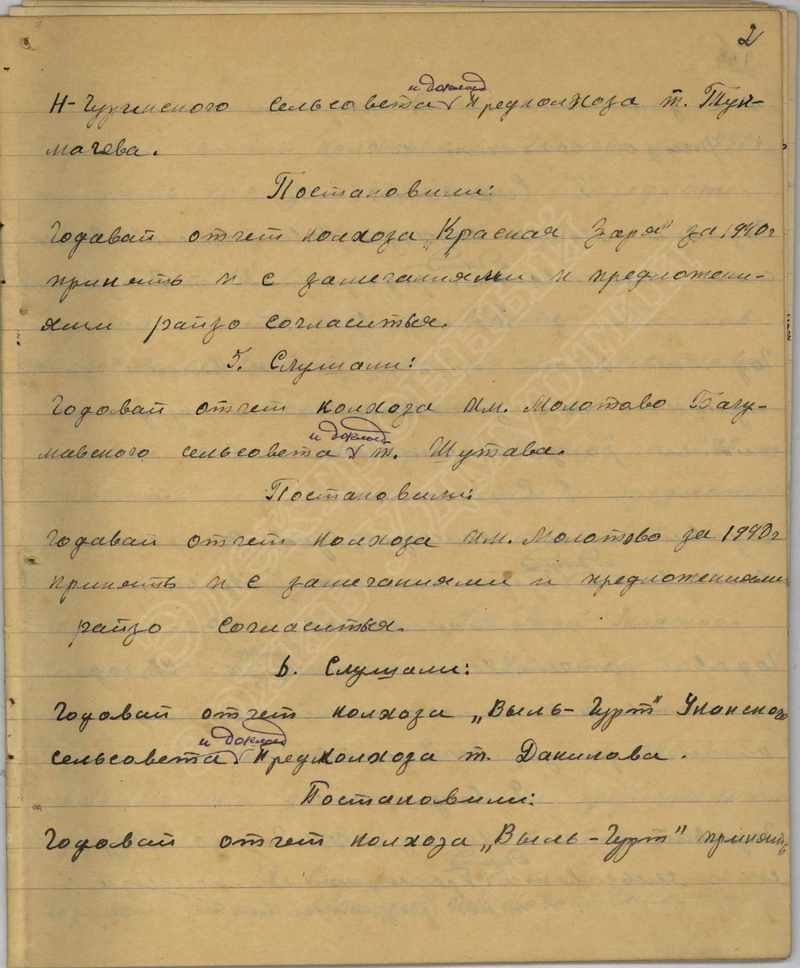 2
и доклад
Н-Чурчинского сельсовета предколхоза т. Тук-
мачева.
Постановили:
Годавай отчет колхоза „Красная Заря" за 1940г
принять и с замечаниями и предложени-
ями райзо согласиться.
5. Слушали:
Годовай отчет колхоза им. Молотово Багу-
и доклад
мавского сельсовета т. Шутава.
Постановили:
Годавай отчет колхоза им. Молотово за 1940г
принять и с замечаниями и предложениями
райзо согласиться.
6. Слушали:
Годовай отчет колхоза „Выль-Гурт" Уканского
и доклад
сельсовета Предколхоза т. Данилова.
Постановили:
Годовай отчет колхоза „Выль-Гурт" принять